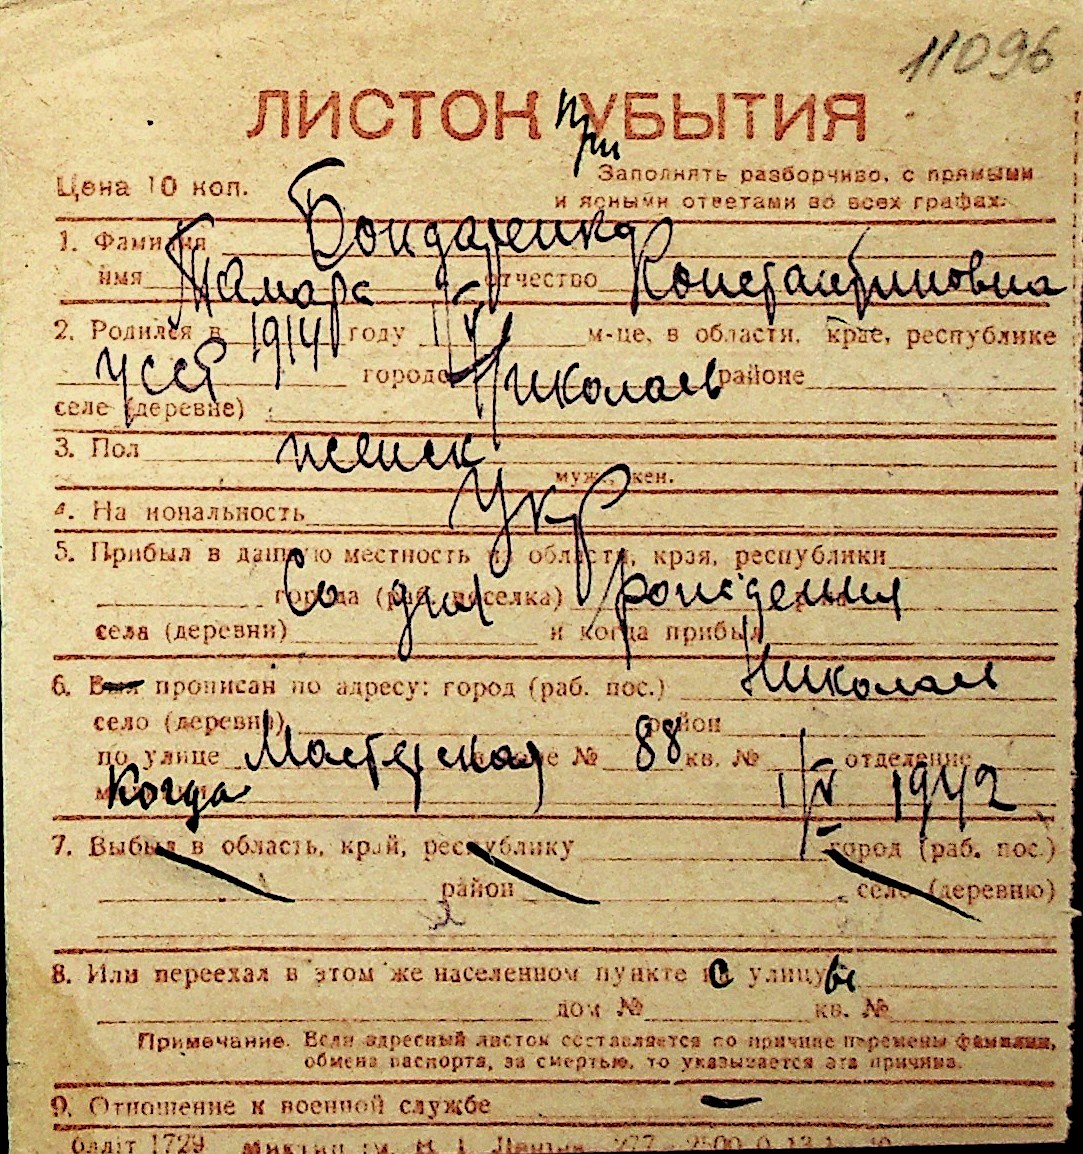 11096
ЛИСТОК при УБЫТИЯ
Цена 10 коп. Заполнять разборчиво, с прямыми
и ясными ответами во всех графах.
1. Фамилия Бондаренко
имя Тамара отчество Константиновна
2. Родился в 1914 году 1/V м-це, в области, крае, республике
УССР городе Николаев районе
селе (деревне)
3. Пол женск
муж., жен.
4. Национальность Укр
5. Прибыл в данную местность из области, края, республики
города (раб. поселка) Со дня рождения
села (деревни) и когда прибыл
6. Был прописан по адресу: город (раб. пос.) Николаев
село (деревня) район
по улице Мастерская № 88 кв. № отделение
Когда 1942
7. Выбыл в область, край, республику город (раб. пос.)
район село (деревню)
8. Или переехал в этом же населенном пункте с улицы
дом № кв. №
Примечание. Если адресный листок составляется по причине перемены фамилии,
обмена паспорта, за смертью, то указывается эта причина.
9. Отношение к военной службе —
1729